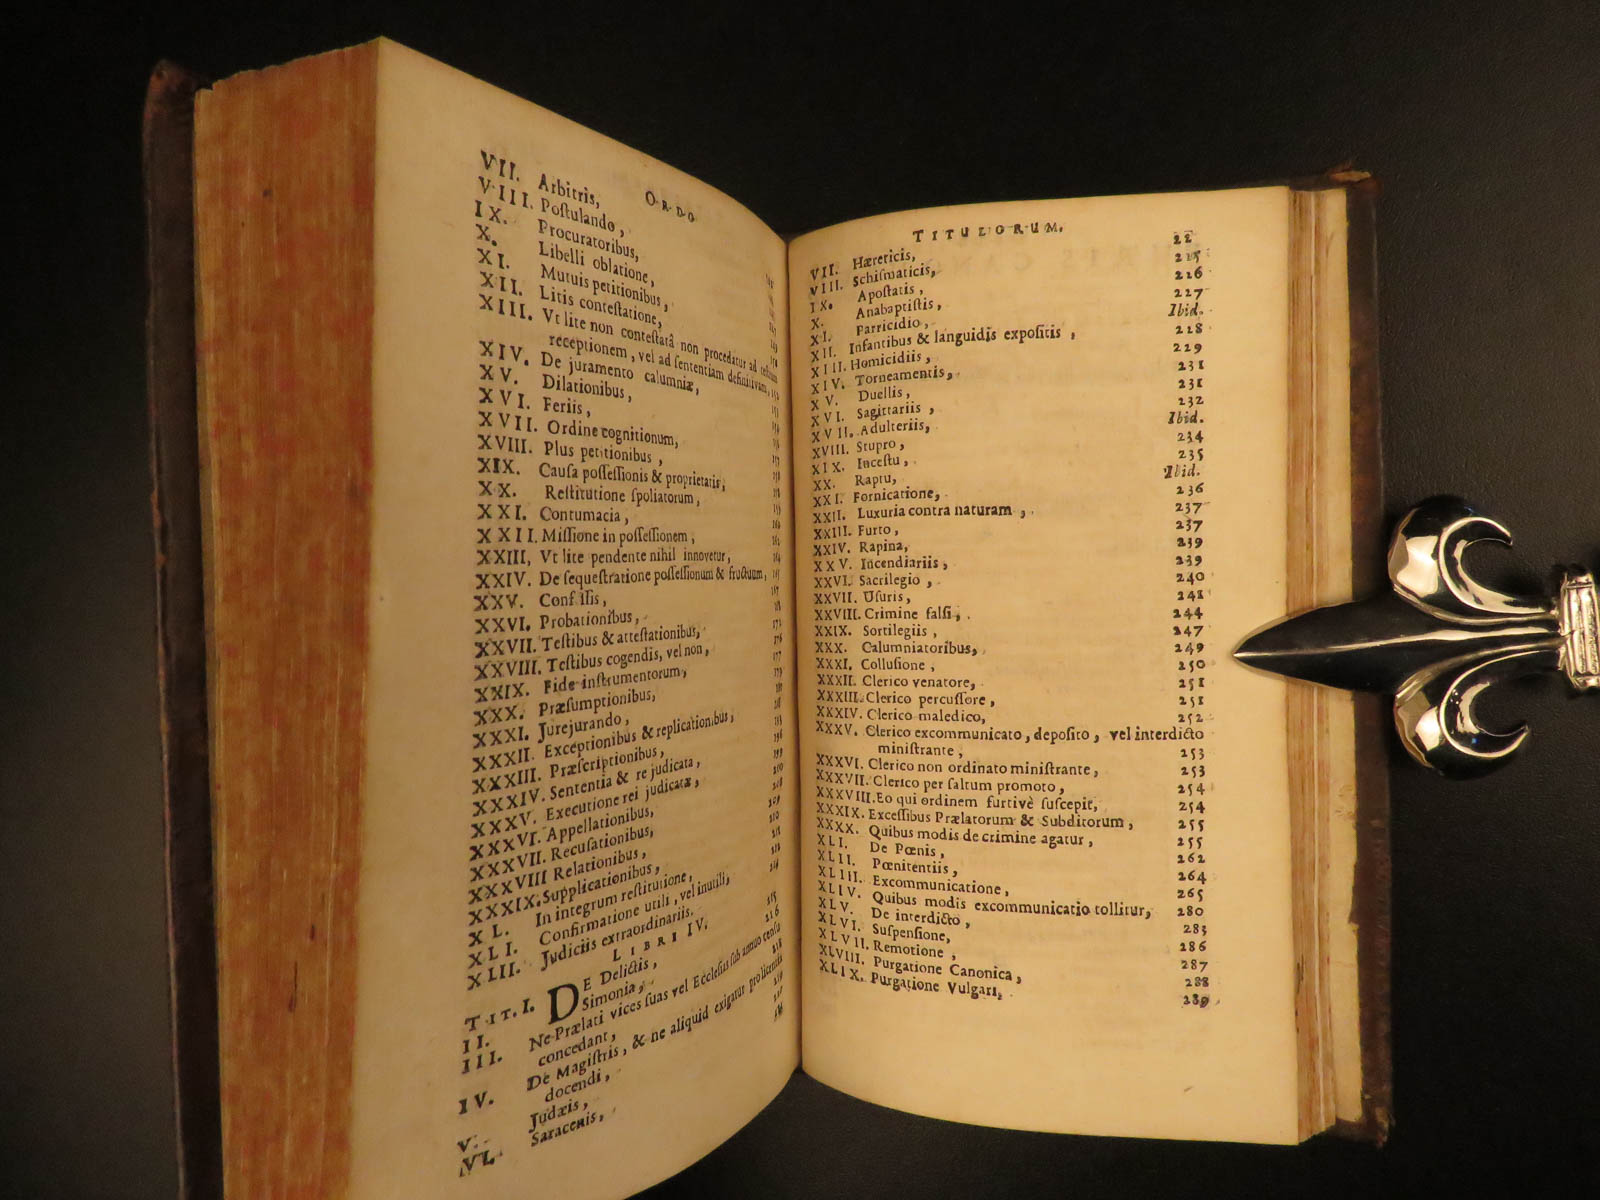 ORDO
VII. Arbitris,
VIII. Poſtulando,
IX. Procuratoribus,
X. Libelli oblatione,
XI. Mutuis petitionibus,
XII. Litis conteſtatione,
XIII. Vt lite non conteſtatâ non procedatur ad teſtium
receptionem, vel ad ſententiam definitivam,
XIV. De juramento calumniæ,
XV. Dilationibus,
XVI. Feriis,
XVII. Ordine cognitionum,
XVIII. Plus petitionibus,
XIX. Cauſa poſſeſſionis & proprietatis,
XX. Reſtitutione ſpoliatorum,
XXI. Contumacia,
XXII. Miſſione in poſſeſſionem,
XXIII, Vt lite pendente nihil innovetur,
XXIV. De ſequeſtratione poſſeſſionum & fructuum,
XXV. Confeſſis,
XXVI. Probationibus,
XXVII. Teſtibus & atteſtationibus,
XXVIII. Teſtibus cogendis, vel non,
XXIX. Fide inſtrumentorum,
XXX. Præſumptionibus,
XXXI. Jurejurando,
XXXII. Exceptionibus & replicationibus,
XXXIII. Præſcriptionibus,
XXXIV. Sententia & re judicata,
XXXV. Executione rei judicatæ,
XXXVI. Appellationibus,
XXXVII. Recuſationibus,
XXXVIII Relationibus,
XXXIX. Supplicationibus,
XL. In integrum reſtitutione,
XLI. Confirmatione utili, vel inutili,
XLII. Judiciis extraordinariis.
LIBRI IV.
TIT. I. DE Delictis, 215
II. Simonia, 216
III. Ne Prælati vices ſuas vel Eccleſias ſub annuo cenſu
concedant,
IV. De Magiſtris, & ne aliquid exigatur pro licentia
docendi,
V. Judæis,
VI. Saracenis,
TITULORUM.
VII. Hæreticis, 22
VIII. Schiſmaticis, 225
IX. Apoſtatis, 226
X. Anabaptiſtis, 227
XI. Parricidio, Ibid.
XII. Infantibus & languidis expoſitis, 228
XIII. Homicidiis, 229
XIV. Torneamentis, 231
XV. Duellis, 231
XVI. Sagittariis, 232
XVII. Adulteriis, Ibid.
XVIII. Stupro, 234
XIX. Inceſtu, 235
XX. Raptu, Ibid.
XXI. Fornicatione, 236
XXII. Luxuria contra naturam, 237
XXIII. Furto, 237
XXIV. Rapina, 239
XXV. Incendiariis, 239
XXVI. Sacrilegio, 240
XXVII. Uſuris, 241
XXVIII. Crimine falſi, 244
XXIX. Sortilegiis, 247
XXX. Calumniatoribus, 249
XXXI. Colluſione, 250
XXXII. Clerico venatore, 251
XXXIII. Clerico percuſſore, 251
XXXIV. Clerico maledico, 252
XXXV. Clerico excommunicato, depoſito, vel interdicto
miniſtrante, 253
XXXVI. Clerico non ordinato miniſtrante, 253
XXXVII. Clerico per ſaltum promoto, 254
XXXVIII. Eo qui ordinem furtivè ſuſcepit, 254
XXXIX. Exceſſibus Prælatorum & Subditorum, 255
XXXX. Quibus modis de crimine agatur, 255
XLI. De Pœnis, 262
XLII. Pœnitentiis, 264
XLIII. Excommunicatione, 265
XLIV. Quibus modis excommunicatio tollitur, 280
XLV. De interdicto, 283
XLVI. Suſpenſione, 286
XLVII. Remotione, 287
XLVIII. Purgatione Canonica, 288
XLIX. Purgatione Vulgari, 289